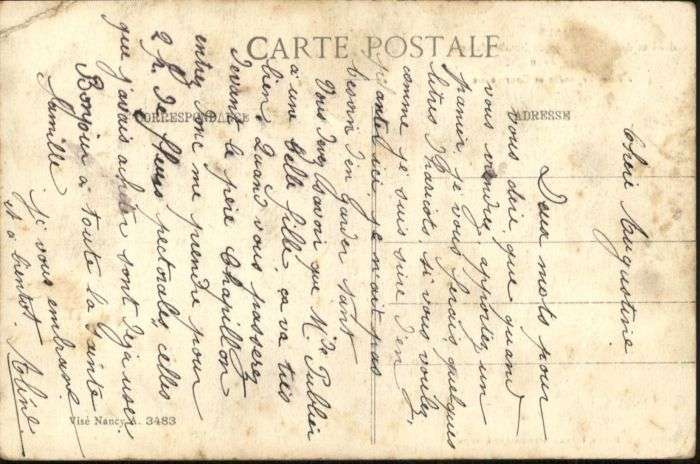 CARTE POSTALE
CORRESPONDANCE
ADRESSE
Chère Augustine
Deux mots pour
vous dire que quand
vous viendrez apportez un
panier je vous ferais quelques
litres d'haricots si vous voulez,
comme je suis sûre d'en
planter ici je n'ait pas
besoin d'en garder tant
Vous devez savoir que Mme Publier
à une belle fille. ça va très
bien. Quand vous passerez
devant le père Chapillon
entrez donc me prendre pour
2 f. de fleurs pectorales, celles
que j'avais acheter sont déja usées.
Bonjour à toute la Sainte
famille. je vous embrasse
et à bientot. Aline
Visé Nancy A. 3483